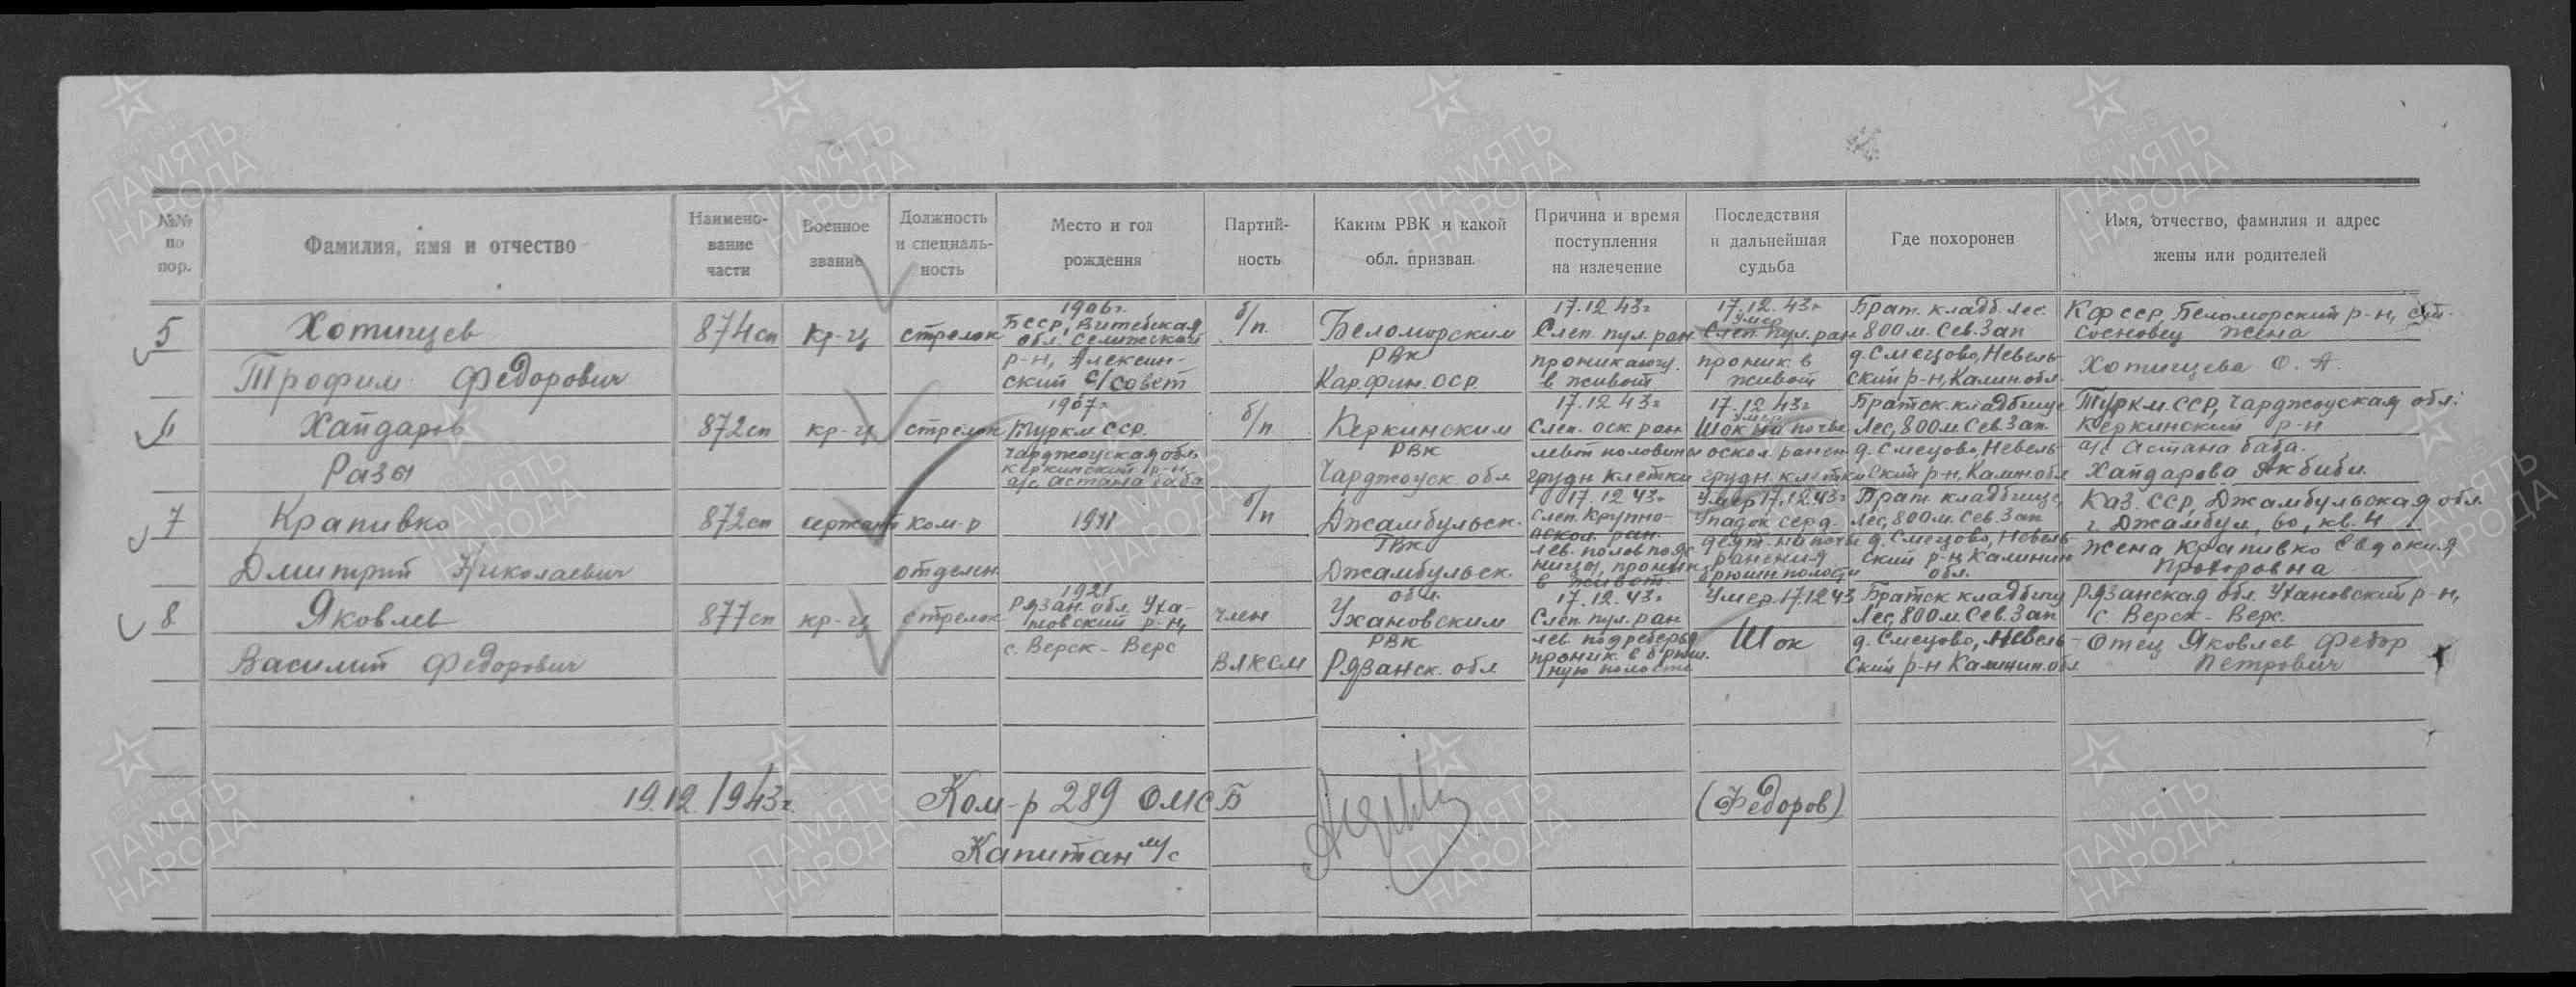 №№ по пор.
Фамилия, имя и отчество
Наимено-
вание
части
Военное
звание
Должность
и специаль-
ность
Место и год
рождения
Партий-
ность
Каким РВК и какой
обл. призван.
Причина и время
поступления
на излечение
Последствия
и дальнейшая
судьба
Где похоронен
Имя, отчество, фамилия и адрес
жены или родителей
5
Хотищев
Трофим Федорович
874 сп
кр-ц
стрелок
1906г.
БССР, Витебская
обл.
р-н, Алексин-
ский с/совет
б/п.
Беломорским
РВК
Кар.фин. ССР.
17.12.43г
Слеп. пул. ран
проникающ.
в живот
17.12.43г
умер
Слеп. пул. ран
проник. в
живот
Брат. кладб. лес.
800 м. Сев. Зап
д. Смецово, Невель-
ский р-н, Калин обл.
КФССР, Беломорский р-н,
Сосновец жена
Хотищева О. А.
6
Хайдаров
Разы
872 сп
кр-ц
стрелок
1907г
Туркм ССР.
Чарджоуская обл.
Керкинский р-н
а/с Астана баба
б/п
Керкинским
РВК
Чарджоуск. обл
17.12 43г
Слеп. оск. ран
левой половины
грудн клетки
17.12 43г
умер
Шок на почве
оскол. ранен
грудн. клетки
Братск. кладбище
Лес, 800 м Сев. Зап.
д. Смецово, Невель-
ский р-н, Калин. обл
Туркм. ССР, Чарджоуская обл.
Керкинский р-н
а/с Астана баба.
Хайдарова Акбиби.
7
Крапивко
Дмитрий Николаевич
872 сп
сержант
ком-р
отделен.
1911
б/п
Джамбульск.
ГВК
Джамбульск.
обл.
17.12 43г
Слеп. крупно-
оскол. ран.
лев. полов пояс
ницы, проник
в живот.
Умер 17.12.43г
Упадок серд.
деят. на почве
ранения
брюшн полости
Брат. кладбище,
Лес, 800 м. Сев. Зап
д. Смецово, Невель-
ский р-н Калинин
обл.
Каз. ССР, Джамбульская обл.
г Джамбул, 60, кв. 4
Жена Крапивко Евдокия
Прохоровна
8
Яковлев
Василий Федорович
877 сп
кр-ц
стрелок
1921
Рязан. обл. Уха-
новский р-н,
с. Верск-Верс
член
ВЛКСМ
Ухановским
РВК
Рязанск. обл
17.12.43г
Слеп. пул. ран
лев. подреберья
проник. в брюш.
ную полость
Умер 17.12 43
Шок
Братск кладбищ
Лес, 800 м. Сев. Зап
д. Смецово, Невель-
ский р-н Калинин. обл
Рязанская обл. Ухановский р-н,
с. Верск-Верс.
Отец Яковлев Федор
Петрович
19.12.1943г.
Ком-р 289 ОМСБ
(Федоров)
Капитан м/с
ПАМЯТЬ НАРОДА